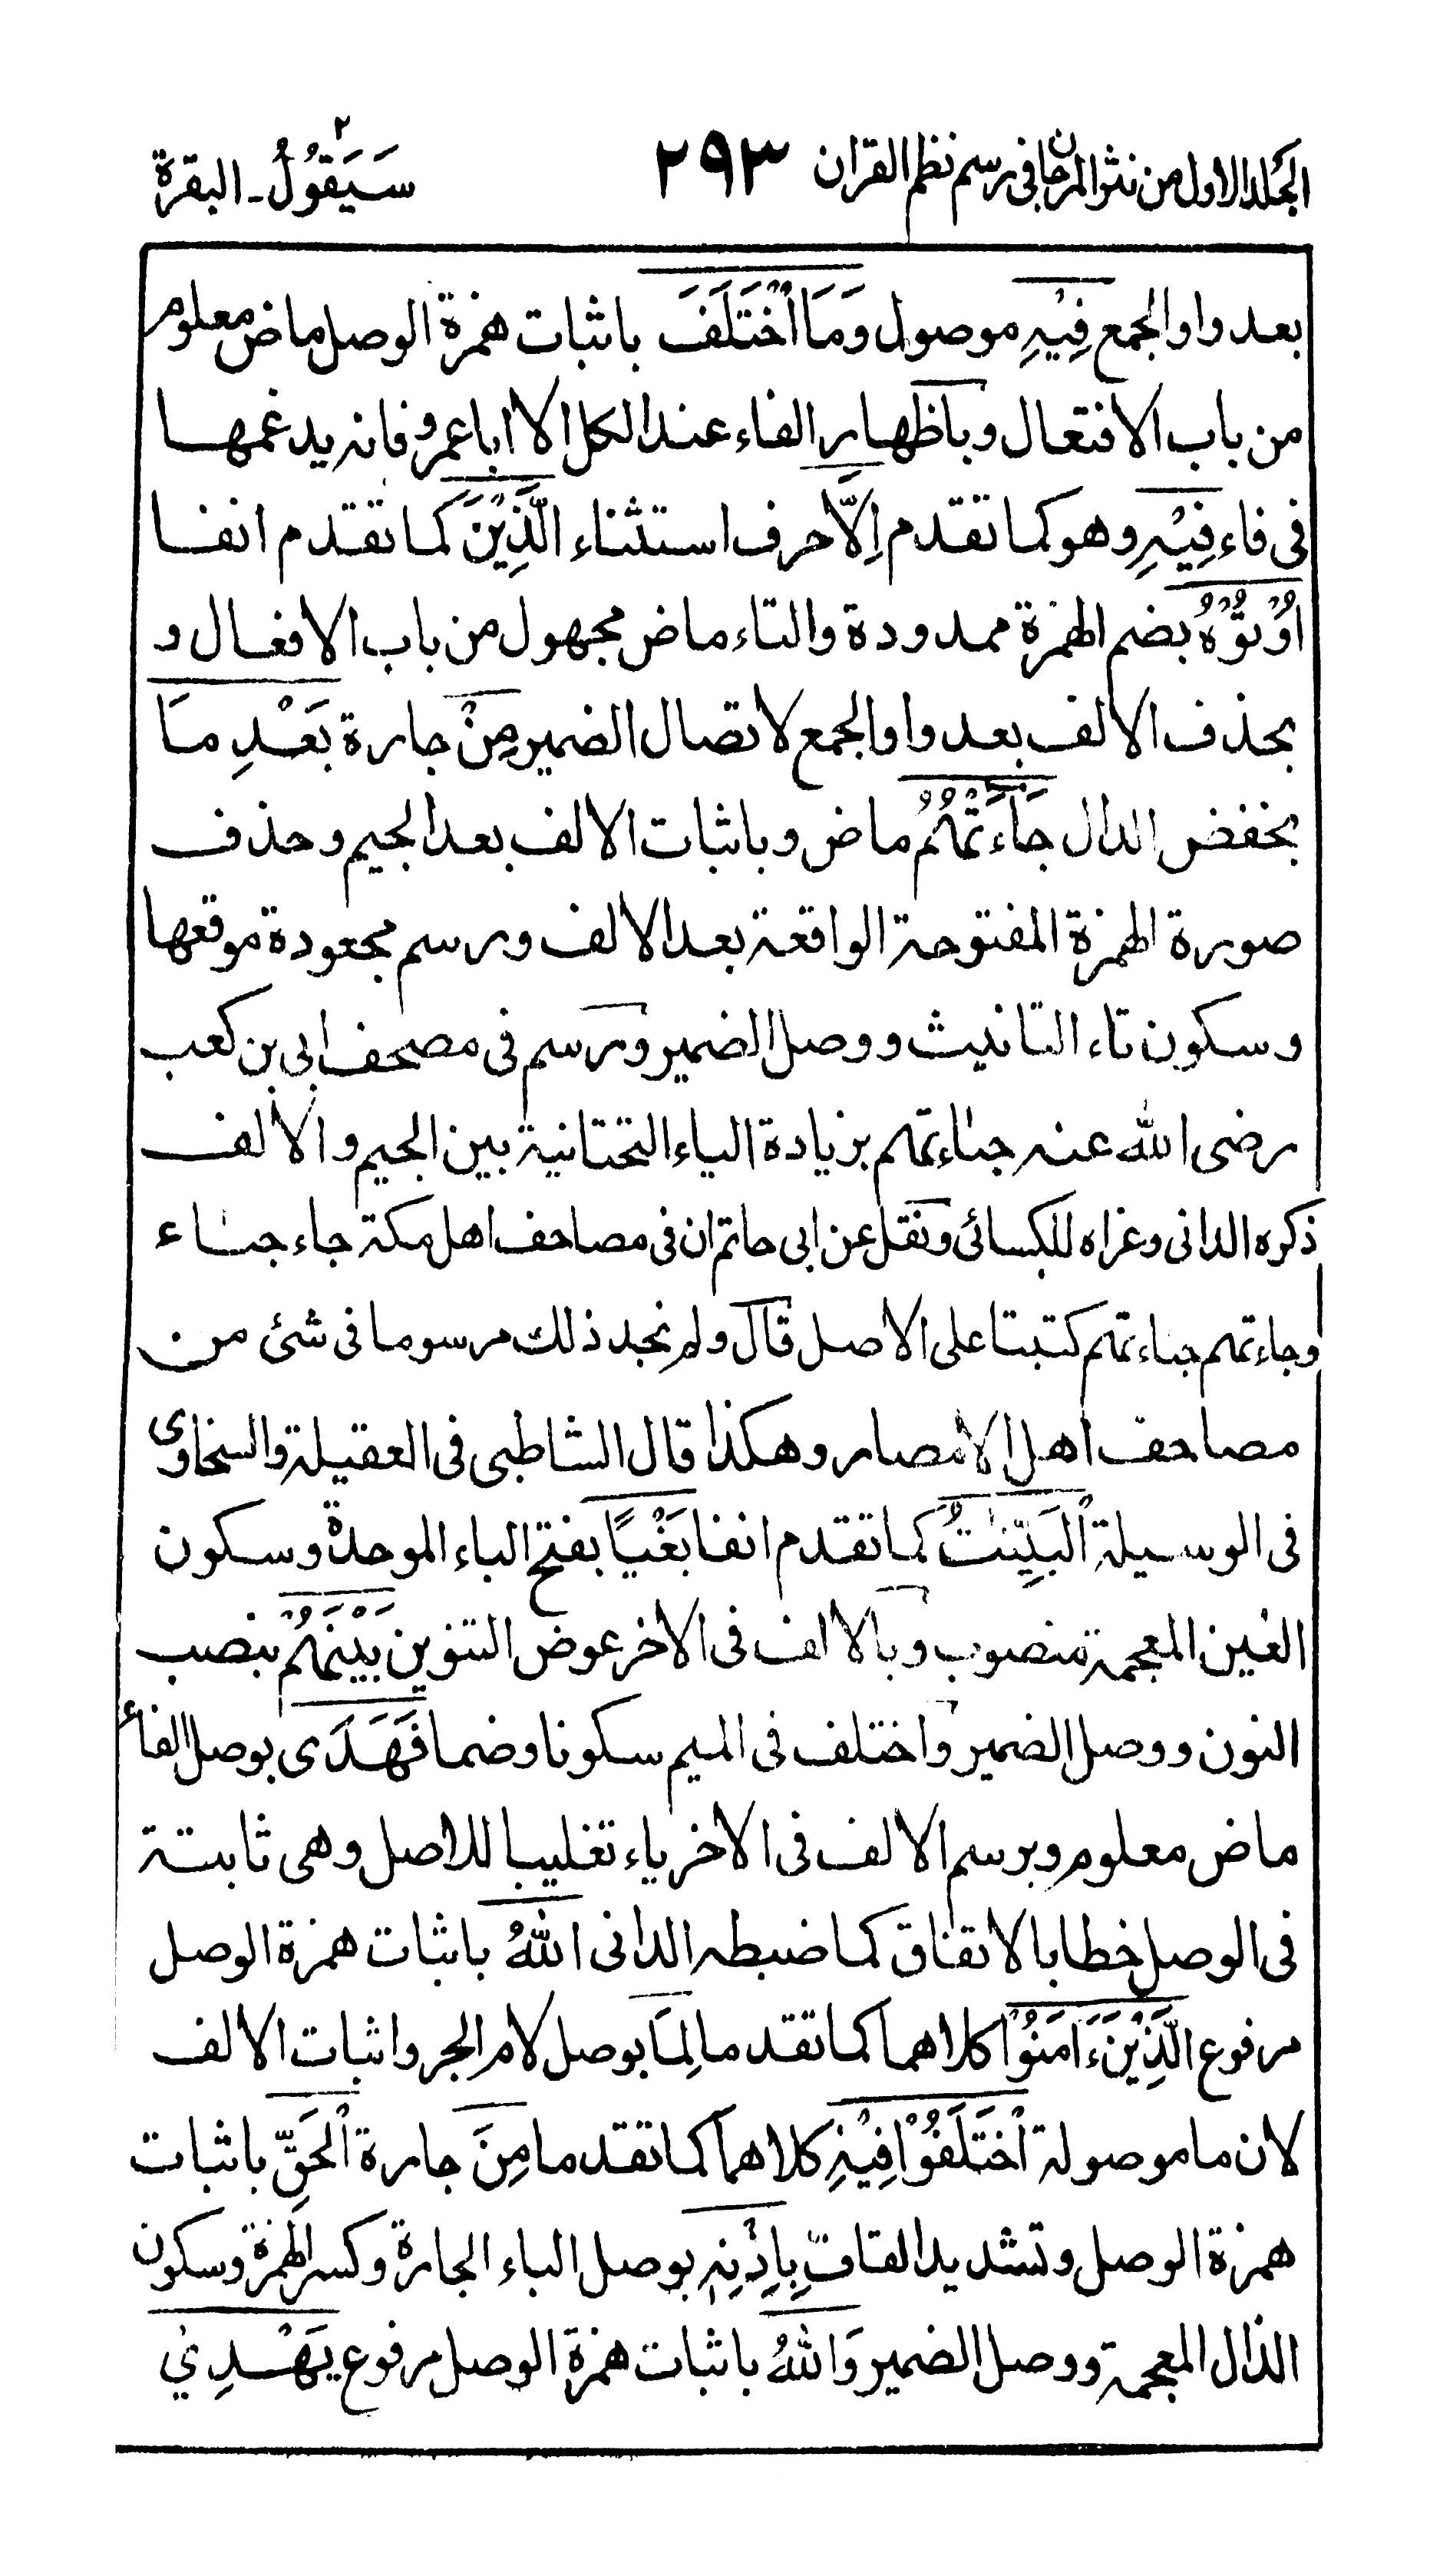 الجلد الاول من نثر المرجان فى رسم نظم القران ٢٩٣ سَيَقُولُ ٢ - البقرة
بعد واو الجمع فِيْهِ موصول وَمَا اخْتَلَفَ باثبات همزة الوصل ماض معلوم
من باب الافتعال وباظهار الفاء عند الكل الا ابا عمرو فانه يدغمها
فى فاء فِيْهِ وهو كما تقدم اِلَّا حرف استثناء الَّذِيْنَ كما تقدم انفا
اُوْتُوْهُ بضم الهمزة ممدودة والتاء ماض مجهول من باب الافعال و
بحذف الالف بعد واو الجمع لاتصال الضمير مِنْ جارة بَعْدِ مَا
بخفض الدال جَاۤءَتْهُمُ ماض وباثبات الالف بعد الجيم وحذف
صورة الهمزة المفتوحة الواقعة بعد الالف ورسم مجعودة موقعها
وسكون تاء التانيث ووصل الضمير ورسم فى مصحف ابى بن كعب
رضى الله عنه جياءتهم بزيادة الياء التحتانية بين الجيم والالف
ذكره الدانى وعزاه للكسائى ونقل عن ابى حاتم ان فى مصاحف اهل مكة جاء جياء
وجاءتهم جياءتهم كتبتا على الاصل قال ولم نجد ذلك مرسوما فى شئ من
مصاحف اهل الامصار وهكذا قال الشاطبى فى العقيلة والسخاوى
فى الوسيلة الْبَيِّنٰتُ كما تقدم انفا بَغْيًا بفتح الباء الموحدة وسكون
الغين المعجمة منصوب وبالالف فى الاخر عوض التنوين بَيْنَهُمْ بنصب
النون ووصل الضمير واختلف فى الميم سكونا وضما فَهَدَى بوصل الفاء
ماض معلوم وبرسم الالف فى الاخر ياء تغليبا للاصل وهى ثابتة
فى الوصل خطا بالاتفاق كما ضبطه الدانى اللهُ باثبات همزة الوصل
مرفوع الَّذِيْنَ ءَامَنُوْا كلاهما كما تقدما لِمَا بوصل لام الجر واثبات الالف
لان ما موصولة اخْتَلَفُوْا فِيْهِ كلاهما كما تقدما مِنَ جارة الْحَقِّ باثبات
همزة الوصل وتشديد القاف بِاِذْنِهٖ بوصل الباء الجارة وكسر الهمزة وسكون
الذال المعجمة ووصل الضمير وَاللهُ باثبات همزة الوصل مرفوع يَهْدِيْ